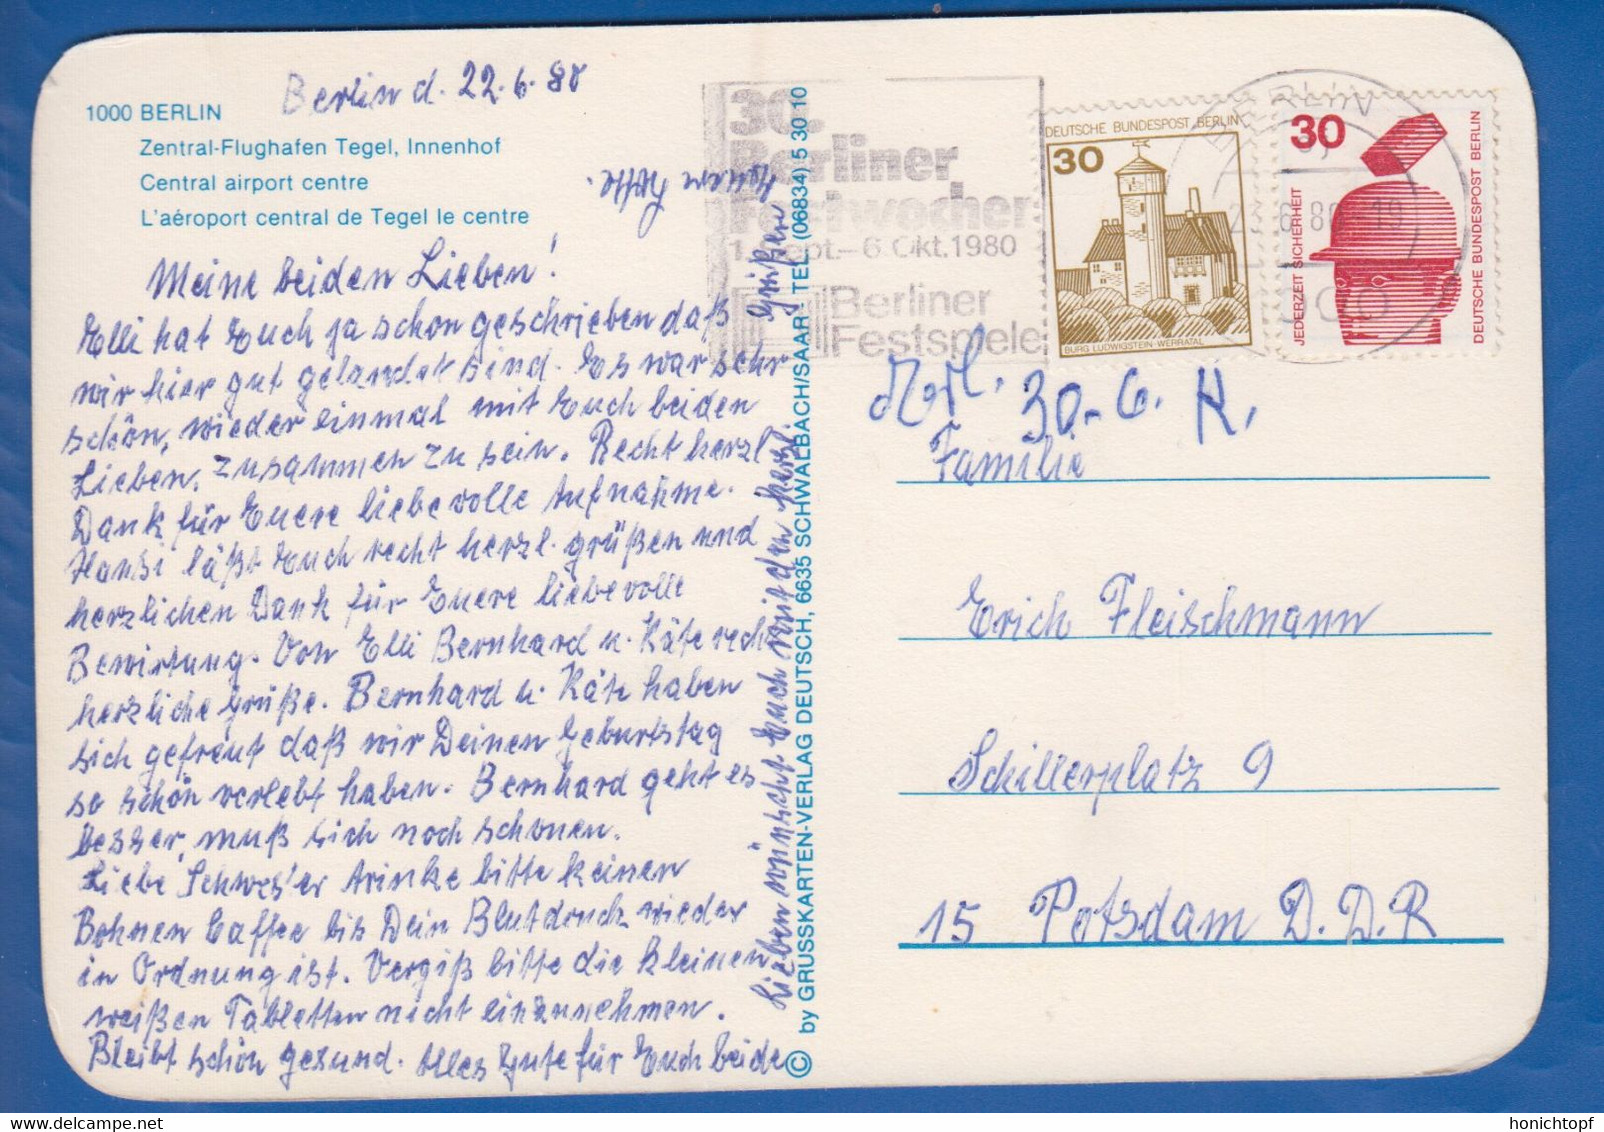 Berlin d. 22.6.80
1000 BERLIN
Zentral-Flughafen Tegel, Innenhof
Central airport centre
L'aéroport central de Tegel le centre
Meine beiden Lieben!
Elli hat Euch ja schon geschrieben daß
wir hier gut gelandet sind. Es war sehr
schön, wieder einmal mit Euch beiden
Lieben, zusammen zu sein. Recht herzl
Dank für Euere liebevolle Aufnahme.
Hansi läßt Euch recht herzl. grüßen und
herzlichen Dank für Euere liebevolle
Bewirtung. Von Elli Bernhard u. Käte recht
herzliche Grüße. Bernhard u. Käte haben
sich gefreut daß wir Deinen Geburtstag
so schön verlebt haben. Bernhard geht es
besser, muß sich noch schonen.
Liebe Schwes'er trinke bitte keinen
Bohnen Caffee bis Dein Blutdruck wieder
in Ordnung ist. Vergiß bitte die kleinen
weißen Tabletten nicht einzunehmen.
Bleibt schön gesund. Alles Gute für Euch beide
Lieben wünscht Euch mit den herzl.
Grüßen
© by GRUSSKARTEN-VERLAG DEUTSCH, 6635 SCHWALBACH/SAAR - TEL. (06834) 5 30 10
30.
Berliner
Festwochen
1. Sept.–6. Okt. 1980
Berliner
Festspiele
DEUTSCHE BUNDESPOST BERLIN
30
BURG LUDWIGSTEIN · WERRATAL
30
JEDERZEIT SICHERHEIT
DEUTSCHE BUNDESPOST BERLIN
BERLIN
30.-6. K.
Familie
Erich Fleischmann
Schillerplatz 9
15 Potsdam D.D.R
honichtopf